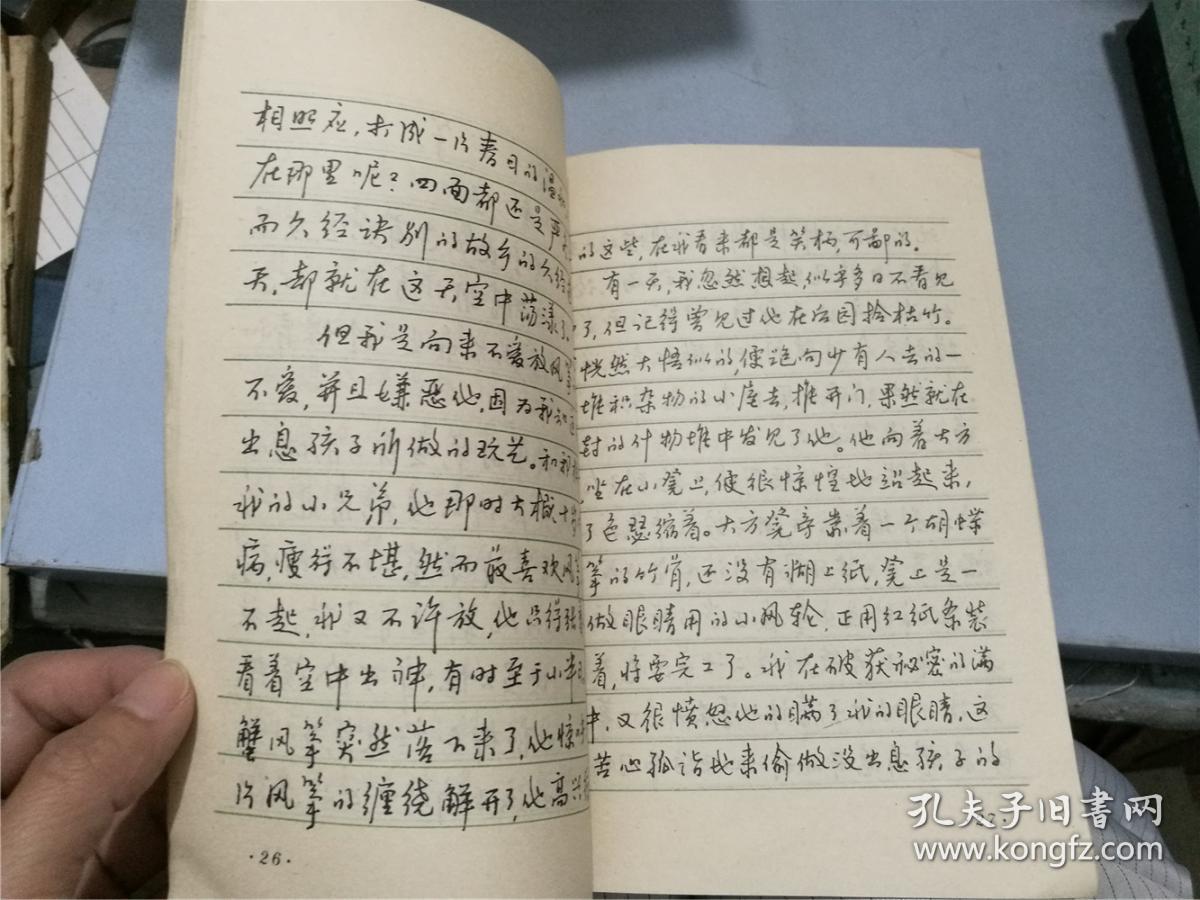 相照应，打成一片春日的温和
在那里呢？四面都还是
而久经诀别的故乡的久经
天，却就在这天空中荡漾了
但我是向来不爱放风筝
不爱，并且嫌恶他，因为我
出息孩子所做的玩艺。和我
我的小兄弟，他那时大概十
病，瘦得不堪，然而最喜欢风
不起，我又不许放，他只得张
看着空中出神，有时至于小半
蟹风筝突然落下来了，他惊
片风筝的缠绕解开了，他高兴
·26·
的这些，在我看来都是笑柄，可鄙的。
有一天，我忽然想起，似乎多日不看见
了，但记得曾见过他在后园拾枯竹。
恍然大悟似的，便跑向少有人去的一
堆积杂物的小屋去，推开门，果然就在
封的什物堆中发见了他。他向着大方
，坐在小凳上，便很惊惶地站起来，
了色瑟缩着。大方凳旁靠着一个胡蝶
筝的竹骨，还没有糊上纸，凳上是一
做眼睛用的小风轮，正用红纸条装
着，将要完工了。我在破获秘密的满
中，又很愤怒他的瞒了我的眼睛，这
苦心孤诣地来偷做没出息孩子的
孔夫子旧书网
www.kongfz.com